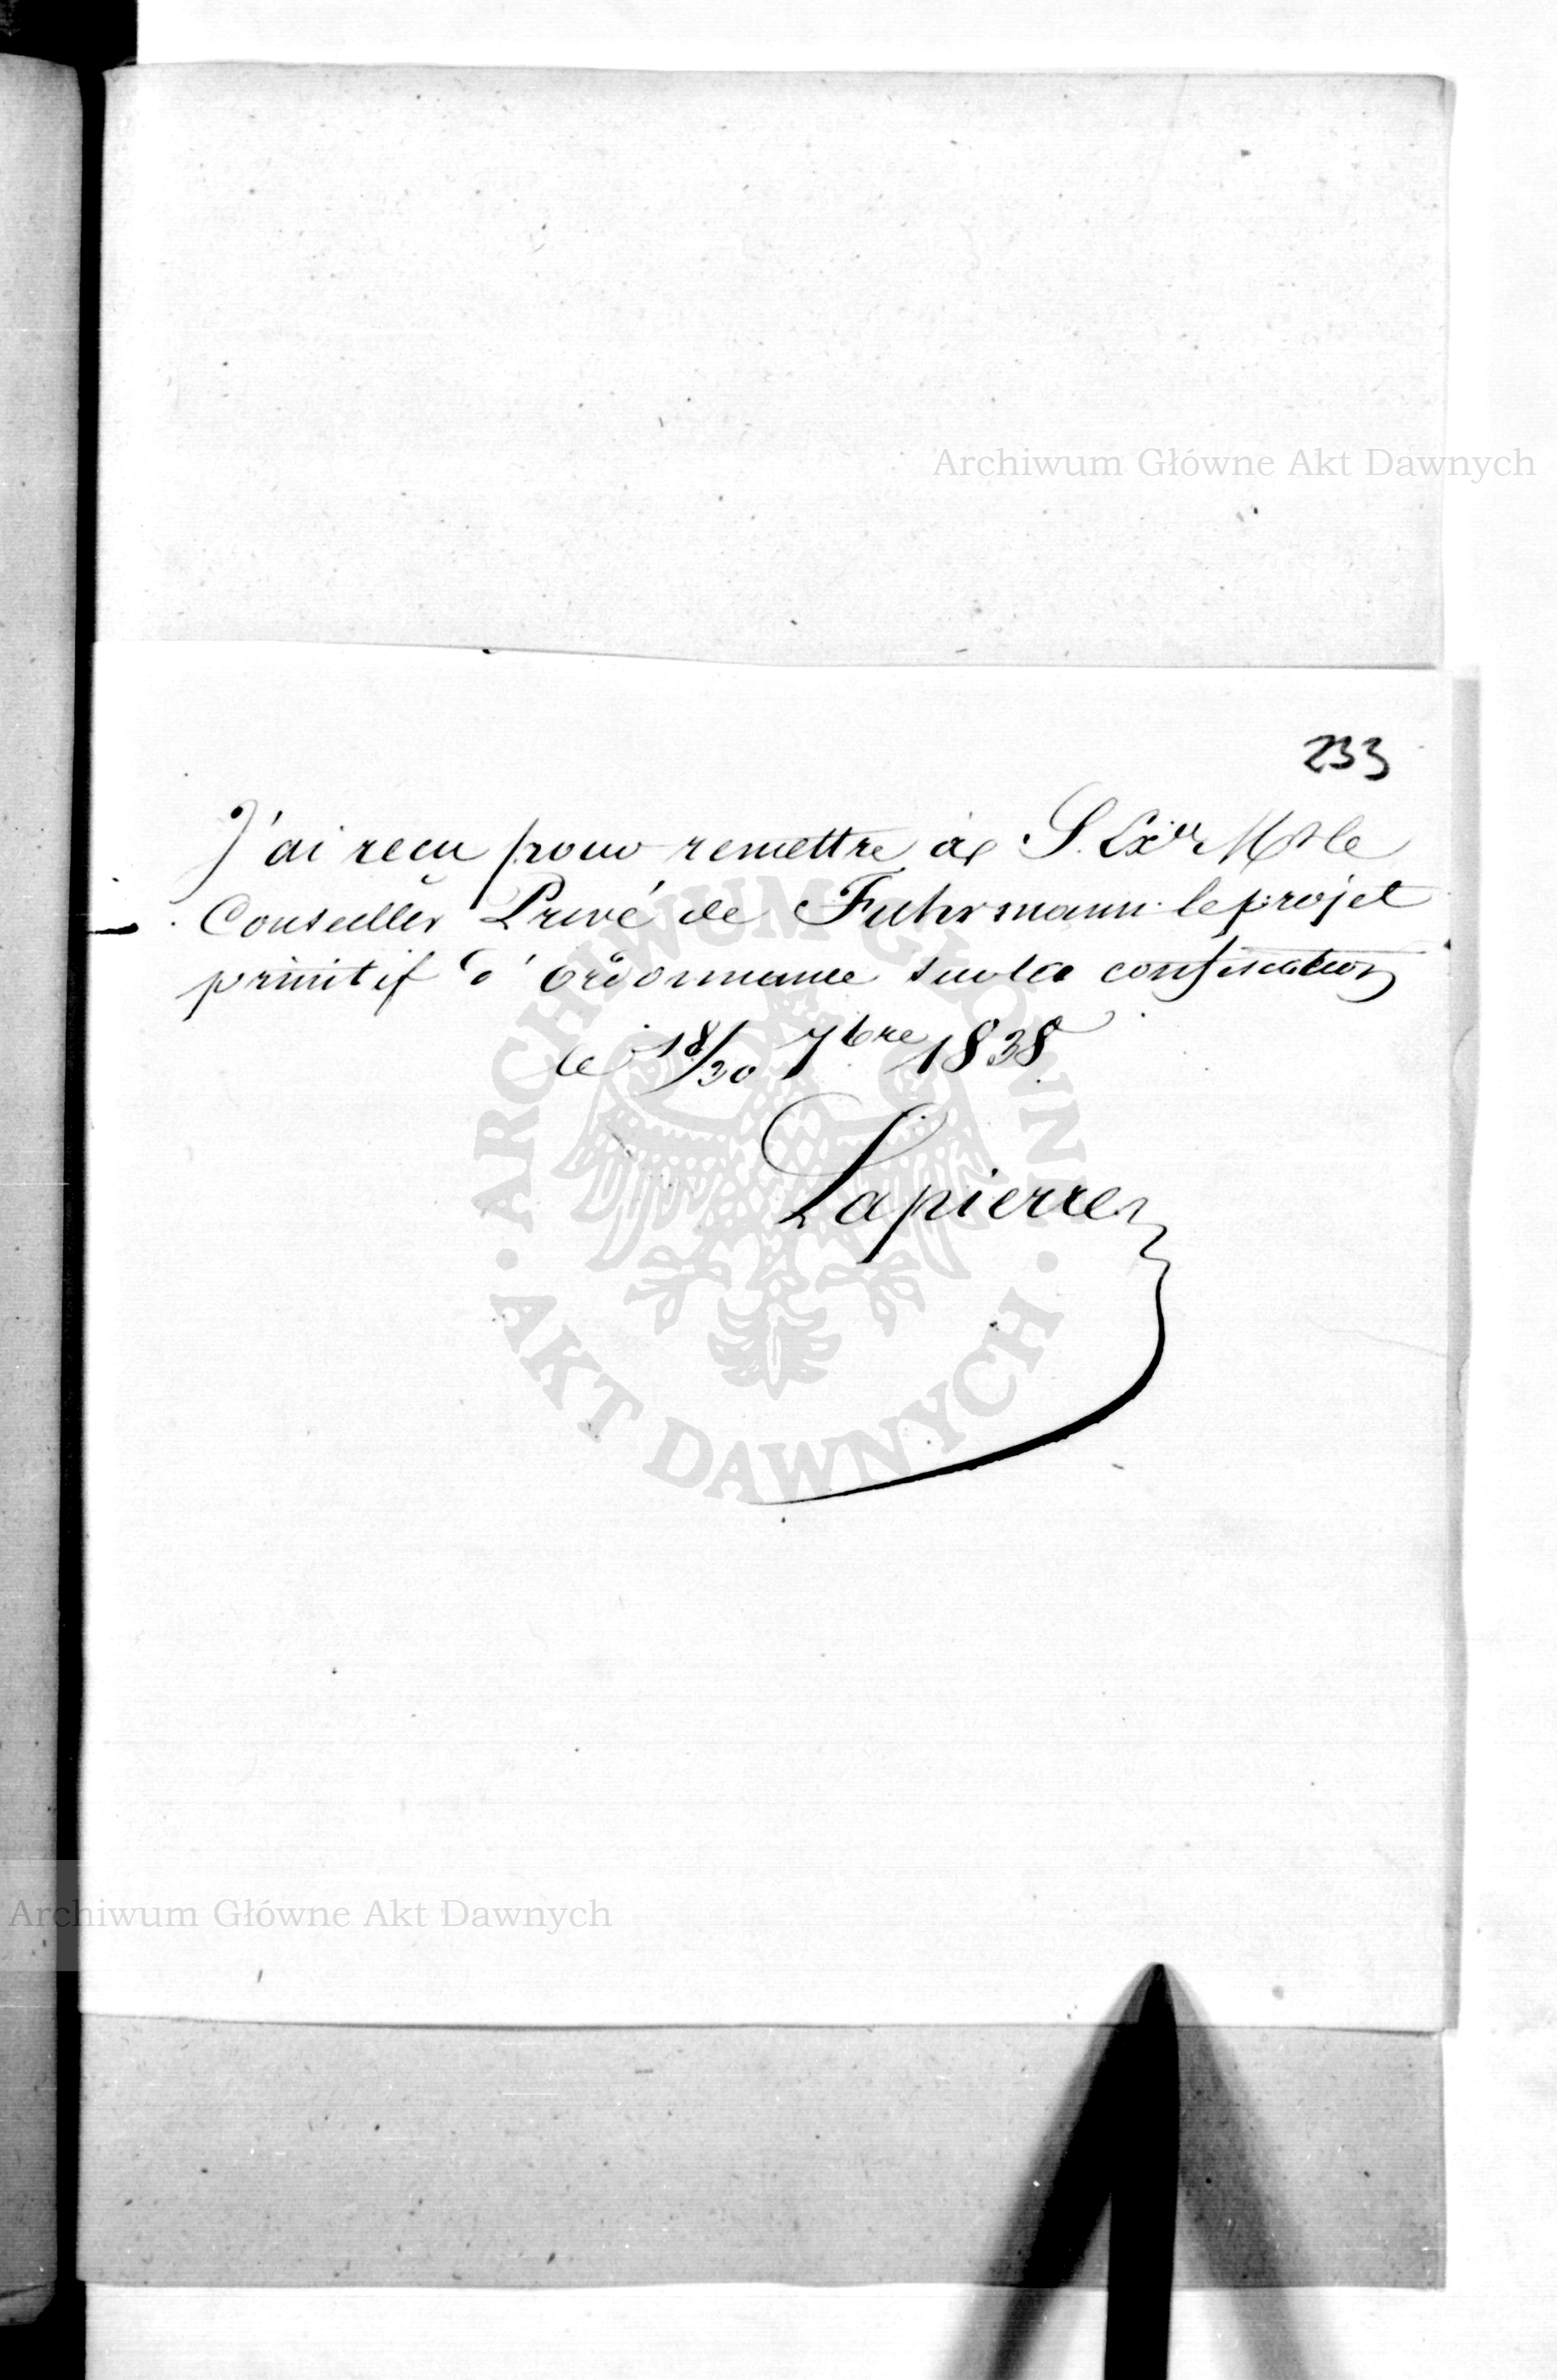 Archiwum Główne Akt Dawnych
233
J'ai reçu pour remettre à S. Ex.ce Mr le
Conseiller Privé de Fuhrmann le projet
primitif d'ordonnance sur la confiscation
le 18/30 7bre 1838.
Lapierre
ARCHIWUM GŁÓWNE
AKT DAWNYCH
Archiwum Główne Akt Dawnych